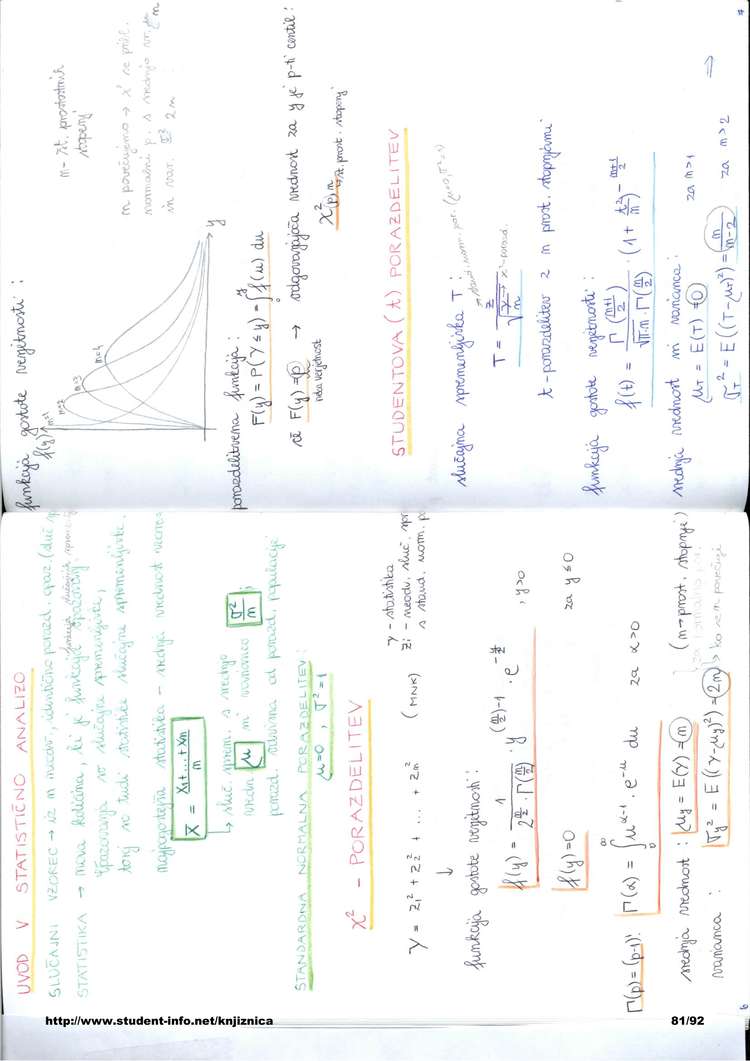 UVOD V STATISTIČNO ANALIZO
SLUČAJNI VZOREC → iz n neodv., identično porazd. opaz. (sluč
STATISTIKA → nova količina, ki je funkcija opazovanj.
funkcija slučajnih
Opazovanja so slučajne spremenljivke,
torej so tudi statistike slučajne spremenljivke.
najpogostejša statistika – srednja vrednost
X = X1+...+Xn / n
→ sluč. sprem. s srednjo
vredn. μ in varianco σ²/n ;
porazd. odvisna od porazd. populacije
STANDARDNA NORMALNA PORAZDELITEV:
μ=0, σ²=1
χ² - PORAZDELITEV
Y = Z1² + Z2² + ... + Zn² (MNK)
Y - statistika
Zi - neodv. sluč. spr
s stand. norm. po
↓
funkcija gostote verjetnosti:
f(y) = 1 / 2^(n/2) · Γ(n/2) · y^((n/2)-1) · e^(-y/2) , y>0
f(y)=0 za y≤0
Γ(p)=(p-1)! Γ(α) = ∫₀^∞ u^(α-1) · e^(-u) du za α>0
srednja vrednost: μy = E(Y) = n (n→prost. stopnje)
varianca: σy² = E((Y-μy)²) = 2n → ko se n povečuje
6
funkcija gostote verjetnosti:
f(y)
n=1
n=2
n=3
n=4
y
n - št. prostostnih
stopenj
n povečujemo → χ² se pribl.
normalni p. s srednjo vr. μ=n
in var. σ² 2n
porazdelitvena funkcija:
F(y) = P(Y ≤ y) = ∫ f(u) du
če F(y)=p → odgovarjajoča vrednost za y je p-ti centil:
neka verjetnost
χ²(p), n
→ št. prost. stopenj
STUDENTOVA (t) PORAZDELITEV
slučajna spremenljivka T:
→ stand. norm. por. (μ=0, σ²=1)
T = Z / √(Y/n) → χ²-porazd.
t-porazdelitev z n prost. stopnjami
funkcija gostote verjetnosti:
f(t) = Γ((n+1)/2) / √(π·n) · Γ(n/2) · (1 + t²/n)^(-(n+1)/2)
srednja vrednost in varianca:
μT = E(T) = 0 za n>1
σT² = E((T-μT)²) = n/(n-2) za n>2
⇒
7
http://www.student-info.net/knjiznica
81/92